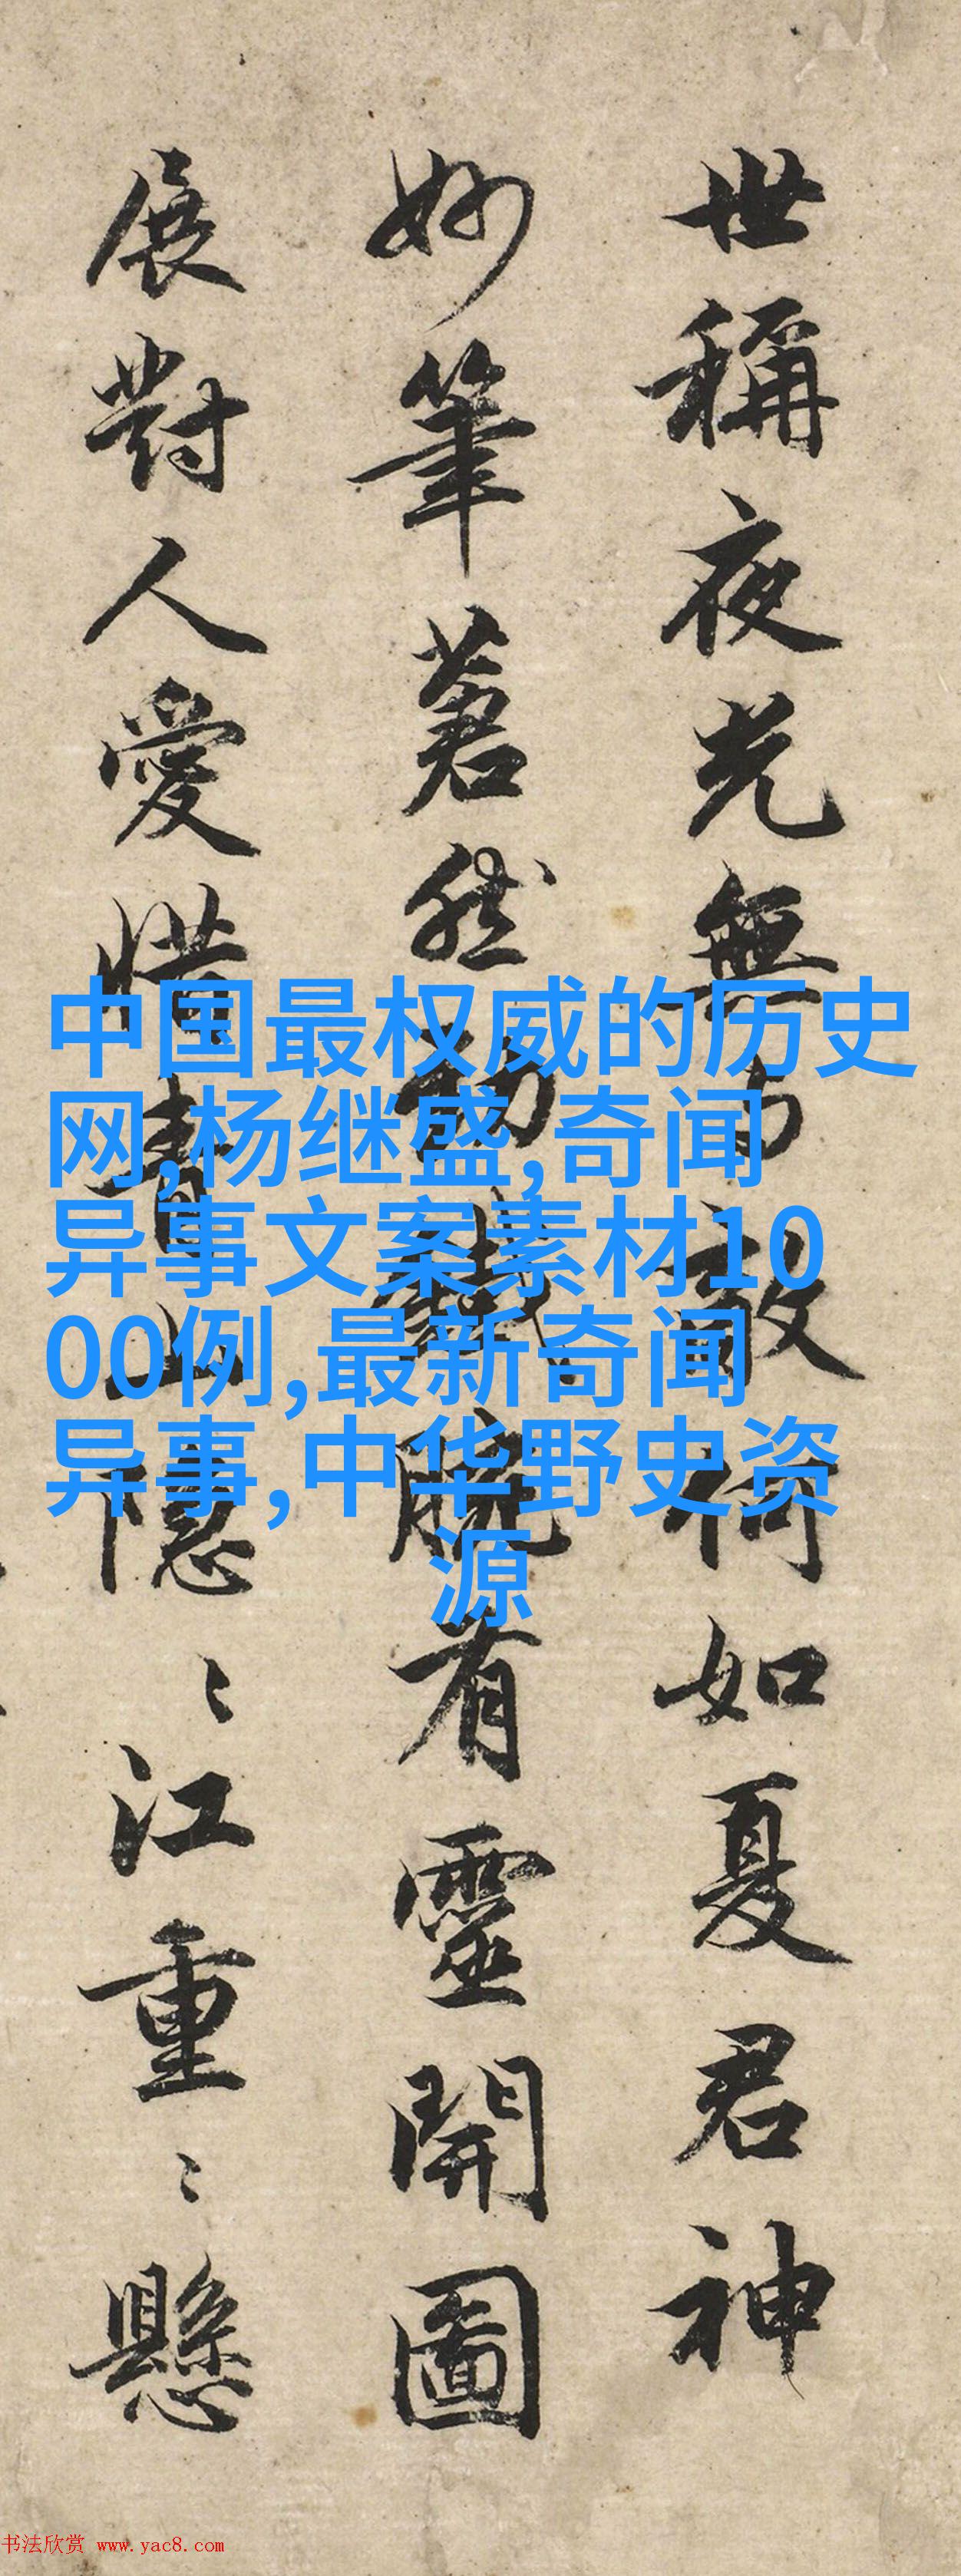 世稱夜光無敵何如夏君神
妙筆然有靈開圖
展對人愛惜青山隱〻江重〻懸
中国最权威的历史
网,杨继盛,奇闻
异事文案素材10
00例,最新奇闻
异事,中华野史资
源
书法欣赏 www.yac8.com